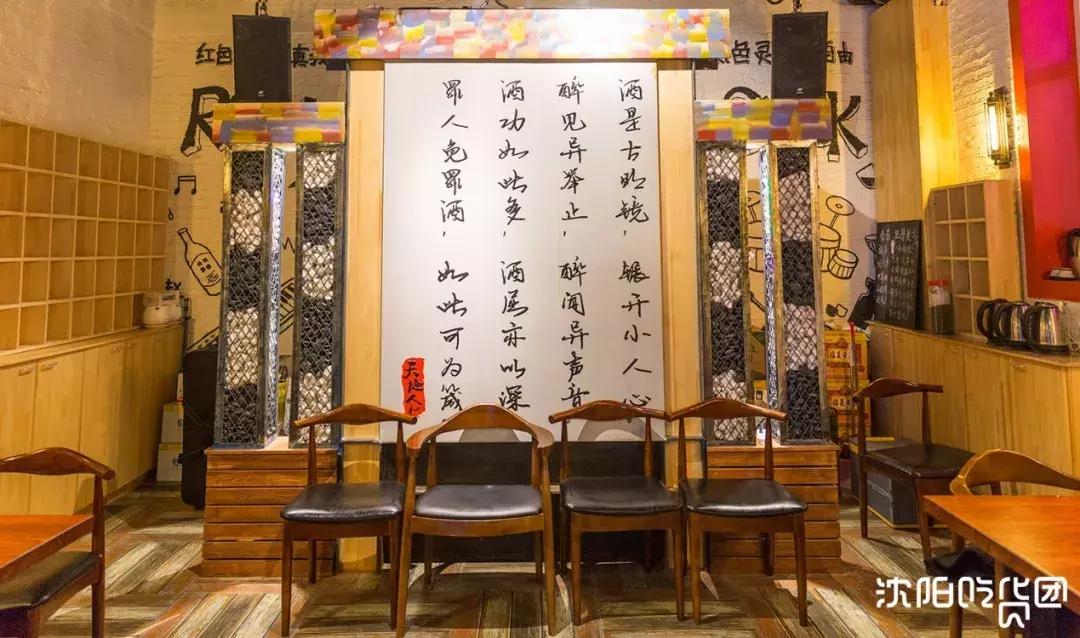 酒是古明镜，辗开小人心。
醉见异举止，醉闻异声音
酒功如此多，酒屈亦以深
罪人免罪酒，如此可为箴
天地人
红色
真
色灵
由
R
K
沈阳吃货团